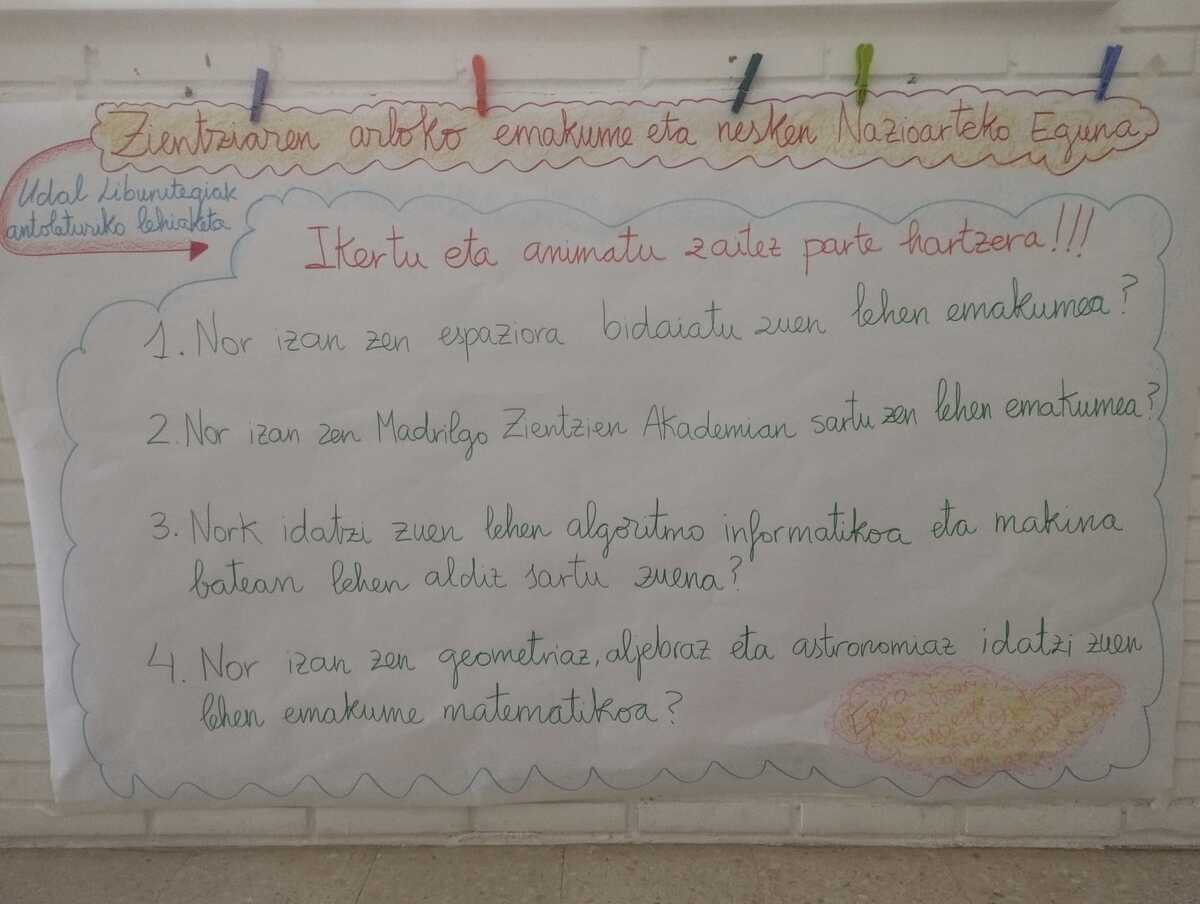 Zientziaren arloko emakume eta nesken Nazioarteko Eguna
Udal Liburutegiak
antolaturiko lehiaketa
Ikertu eta animatu zaitez parte hartzera!!!
1. Nor izan zen espaziora bidaiatu zuen lehen emakumea?
2. Nor izan zen Madrilgo Zientzien Akademian sartu zen lehen emakumea?
3. Nork idatzi zuen lehen algoritmo informatikoa eta makina
batean lehen aldiz sartu zuena?
4. Nor izan zen geometriaz, aljebraz eta astronomiaz idatzi zuen
lehen emakume matematikoa?
Epea